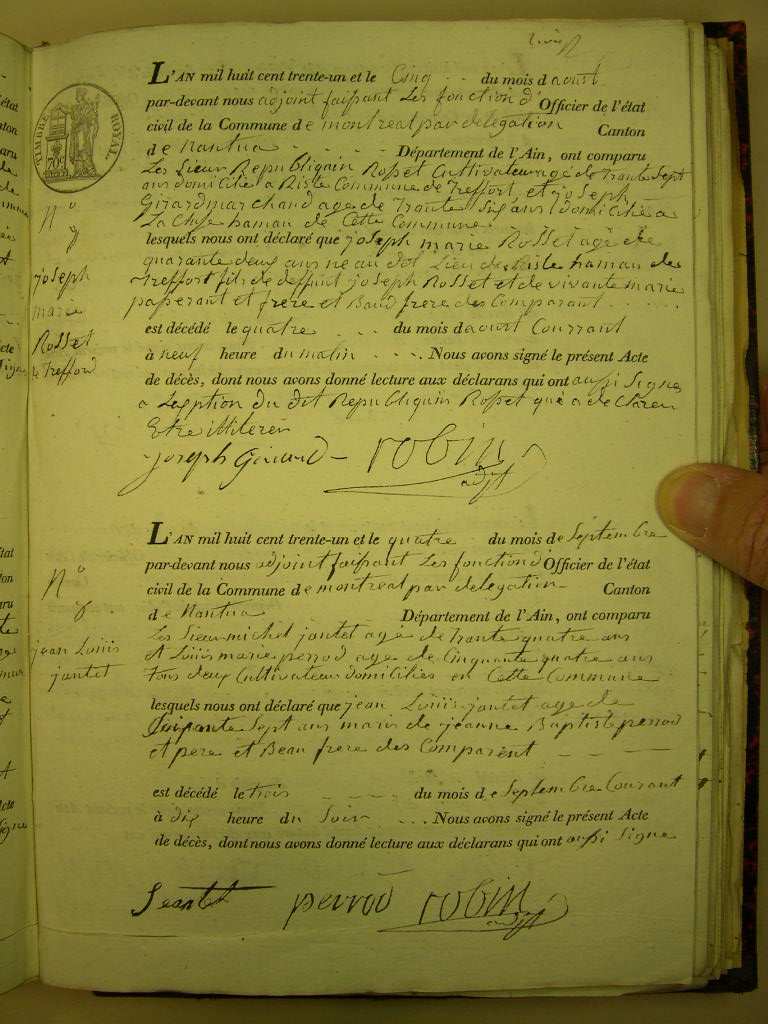 TIMBRE ROYAL.
L'AN mil huit cent trente-un et le Cinq du mois d aoust
par-devant nous adjoint faissant Les fonction d' Officier de l'état
civil de la Commune de montreal par delegation Canton
de Nantua Département de l'Ain, ont comparu
Les Sieur Republiquin Rosset Cultivateur agé de Trante Sept
ans domicilié a Commune de Treffort et joseph
Girard marchand age de Trante Six ans domicilié a
La Cluse hamau de Cette Commune
lesquels nous ont déclaré que joseph marie Rosset agé de
quarante deux ans ne au dot Lieu de hamau de
treffort fils de deffunt joseph Rosset et de vivante marie
et frere et Baud frere des Comparant
est décédé le quatre du mois d aoust Courrant
à neuf heure du matin Nous avons signé le présent Acte
de décès, dont nous avons donné lecture aux déclarans qui ont aussi Signe
a Lexption du dit Republiquin Rosset qui a de Claren
Etre illiteren
joseph Girard robin adjt
N°
7
joseph
marie
Rosset
de Trefford
L'AN mil huit cent trente-un et le quatre du mois de Septembre
par-devant nous adjoint faissant Les fonction d' Officier de l'état
civil de la Commune de montreal par delegation Canton
de Nantua Département de l'Ain, ont comparu
Les Sieur michel jantet agé de Trante quatre ans
et Louis marie perrod age de Cinquante quatre ans
tous deux Cultivateurs domiciliés en Cette Commune
lesquels nous ont déclaré que jean Louis jantet age de
Soixante Sept ans maris de jeanne Baptiste perrod
et pere et Beau frere des Comparent
est décédé le trois du mois de Septembre Courant
à dix heure du Soir Nous avons signé le présent Acte
de décès, dont nous avons donné lecture aux déclarans qui ont aussi Signe
perrod robin adjt
N°
8
jean Louis
jantet